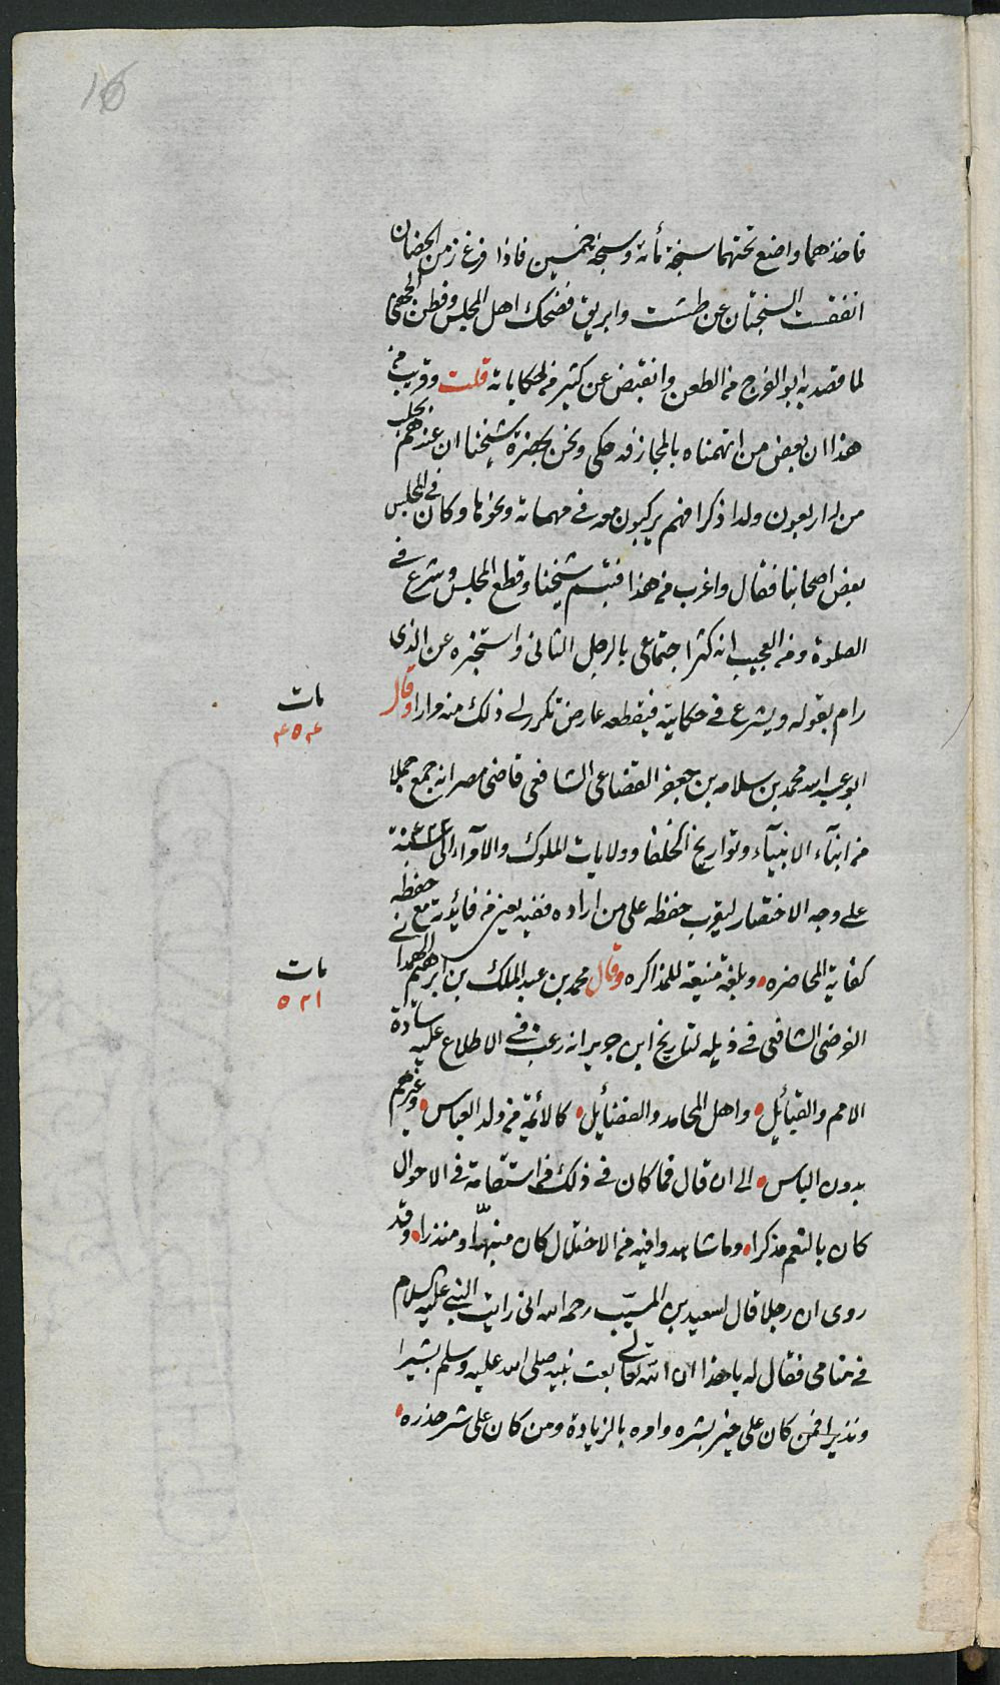 16
فاخذهما واضع تحتهما سنجة مأنة وسنجة خمسين فاذا فرغ زمن الحضان
انفقست السنجتان عن طشت وابريق فضحك اهل المجلس وفطن الجهني
لما قصد به ابو الفرج من الطعن وانقبض عن كثير من حكاياته قلت وقريب من
هذا ان بعض من اتهمناه بالمجازفه حكى ونحن بحضرة شيخنا ان عندهم بحلب
من له اربعون ولدا ذكرا فهم يركبون معه في مهماته ونحوها وكان في المجلس
بعض اصحابنا فقال واغرب من هذا فتبسم شيخنا وقطع المجلس وشرع في
الصلوة ومن العجيب انه كثر اجتماعي بالرجل الثاني واستخبره عن الذي
رام بقوله ويشرع في حكايته فيقطعه عارض تكرر لي ذلك منه مرارا وقال
مات
٤٥٤
ابو عبد الله محمد بن سلامه بن جعفر القضاعي الشافعي قاضي مصر انه جمع جملا
من انبآء الانبيآء وتواريخ الخلفا وولايات الملوك والامرآء الى سنة ٤٢٢
على وجه الاختصار ليقرب حفظه على من اراده ففيه يعني من فائدته مع حفظه
كفاية المحاضره وبلغة منيعة للمذاكره وقال محمد بن عبد الملك بن ابرهيم الهمداني
مات
٥٢١
الفرضي الشافعي في ذيله لتاريخ ابن جرير انه رغب في الاطلاع عليه سادة
الامم والقبائل واهل المحامد والفضائل كالائمة من ولد العباس وغيرهم
بدون الباس الى ان قال فما كان في ذلك من استقامة في الاحوال
كان بالنعم مذكرا وما شاهدوا فيه من الاختلال كان منبها ومنذرا وقد
روى ان رجلا قال لسعيد بن المسيّب رحمه الله اني رايت النبي عليه السلام
في منامي فقال له يا هذا ان الله تعالى بعث نبيه صلى الله عليه وسلم بشيرا
ونذيرا فمن كان على خير بشره وامره بالزيادة ومن كان على شر حذره